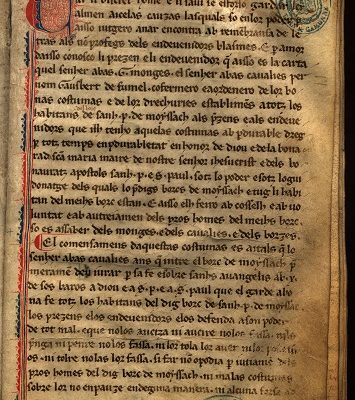 almen aicelas cauzas lasquals so en lor poder
aisso vulgero anar encontra ab remenbransa de le
tras als nō proferēs dels endeuenidors blasmes. E p amor
daisso conosco li prezen eli endeuenidor q̄ aisso es la carta
quel senher abas. G. monges. el senher abas caualiers per
nom Gausbert de fumel. cofermero eaordenero de lor bo
nas costumas e de lor drechurias establimēs a totz los
habitans de sanh. p. de moyssach als p̄zens e als endeue
nidors que ilh tenho aquelas costumas ab pdurable dreg
p tot temps enpdurabletat en honor de dieu e de la bona
rad sc̄a maria maire de nostre senher ihesucrist e dels bo
nautatz apostols sanh. p. e. s. paul. sotz lo poder e sotz logui
donatge dels quals lo p̄digs borcs de moyssach e tug li habi
tan del meihs borc estan. E aisso ilh fero ab cosselh e ab uo
luntat e ab autreiamen dels pros homes del meihs borc.
so es assaber dels monges. e dels caualiers. e dels borzes.
El comensamens daquestas costumas es aitals q̄ lo
senher abas caualiers ans q̄ intre el borc de moyssach p̄
meramē deu iurar p sa fe e sobre sanhs auangelis ab .x.
de sos baros a dieu e a s. p. e a s. paul que el garde a bo
na fe totz los habitans del dig borc de sanh. p. de moyssac.
los prezens elos endeuenidors elos defenda a son poder
de tot mal. e que nolos auciza ni aucire nolos fassa. ni los
p̄nga ni penre nolos fassa. ni lor tola lor auer ni lor poss
os. ni tolre nolas lor fassa. si far nō opodia p uoluntat dels
pros homes del dig borc de moyssach. ni malas costumas
sobre lor no enpauze en deguna manera. ni alcuna forsa als